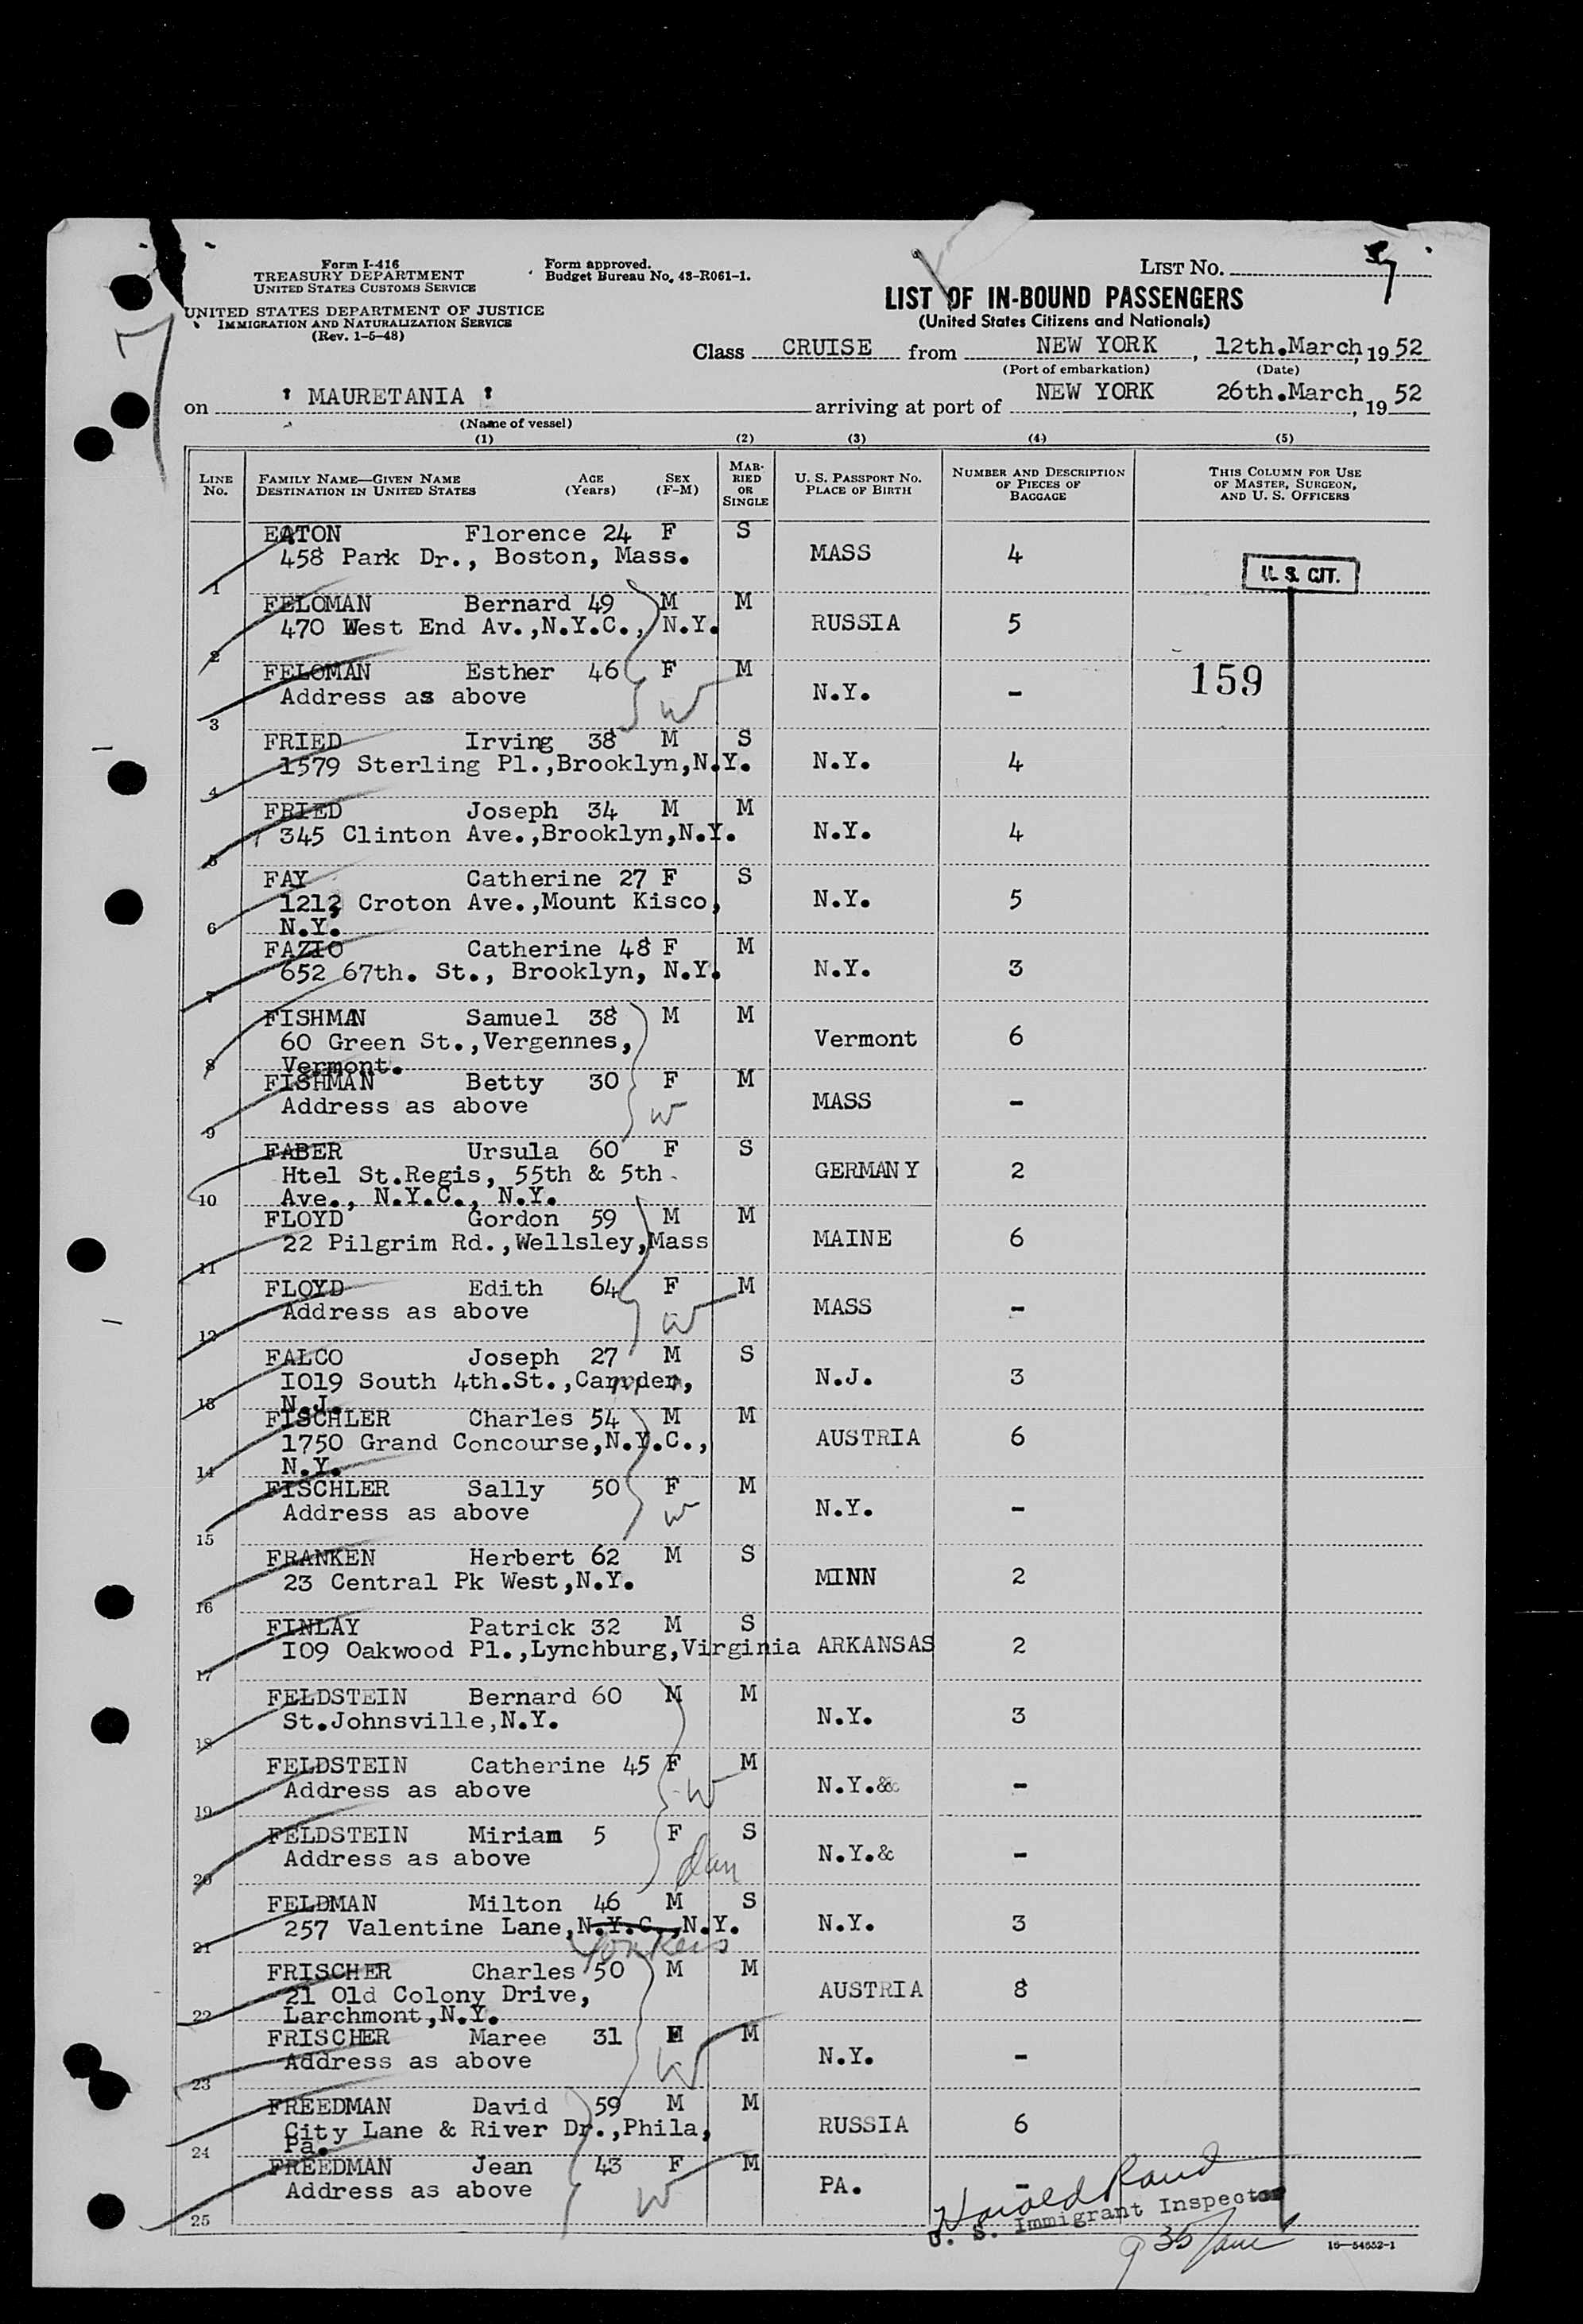 Form I-416
TREASURY DEPARTMENT
UNITED STATES CUSTOMS SERVICE
UNITED STATES DEPARTMENT OF JUSTICE
IMMIGRATION AND NATURALIZATION SERVICE
(Rev. 1-5-48)
Form approved.
Budget Bureau No. 43-R061-1.
LIST No. 7
LIST OF IN-BOUND PASSENGERS
(United States Citizens and Nationals)
Class CRUISE from NEW YORK, 12th.March, 1952
(Port of embarkation) (Date)
on ' MAURETANIA ' arriving at port of NEW YORK 26th.March, 1952
(Name of vessel)
(1) (2) (3) (4) (5)
LINE No.
FAMILY NAME—GIVEN NAME AGE SEX
DESTINATION IN UNITED STATES (Years) (F-M)
MARRIED OR SINGLE
U. S. PASSPORT NO.
PLACE OF BIRTH
NUMBER AND DESCRIPTION
OF PIECES OF
BAGGAGE
THIS COLUMN FOR USE
OF MASTER, SURGEON,
AND U. S. OFFICERS
EATON Florence 24 F S
458 Park Dr., Boston, Mass. MASS 4
U. S. CIT.
1
FELOMAN Bernard 49 M M
470 West End Av.,N.Y.C., N.Y. RUSSIA 5
2
FELOMAN Esther 46 F M
Address as above N.Y. - 159
W
3
FRIED Irving 38 M S
1579 Sterling Pl.,Brooklyn,N.Y. N.Y. 4
4
FRIED Joseph 34 M M
345 Clinton Ave.,Brooklyn,N.Y. N.Y. 4
5
FAY Catherine 27 F S
1212 Croton Ave.,Mount Kisco, N.Y. 5
6 N.Y.
FAZIO Catherine 48 F M
652 67th. St., Brooklyn, N.Y. N.Y. 3
7
FISHMAN Samuel 38 M M
60 Green St.,Vergennes, Vermont 6
8 Vermont.
FISHMAN Betty 30 F M
Address as above MASS -
W
9
FABER Ursula 60 F S
Htel St.Regis, 55th & 5th GERMANY 2
10 Ave., N.Y.C., N.Y.
FLOYD Gordon 59 M M
22 Pilgrim Rd.,Wellsley,Mass MAINE 6
11
FLOYD Edith 64 F M
Address as above MASS -
W
12
FALCO Joseph 27 M S
I019 South 4th.St.,Camden, N.J. 3
13 N.J.
FISCHLER Charles 54 M M
1750 Grand Concourse,N.Y.C., AUSTRIA 6
14 N.Y.
FISCHLER Sally 50 F M
Address as above N.Y. -
W
15
FRANKEN Herbert 62 M S
23 Central Pk West,N.Y. MINN 2
16
FINLAY Patrick 32 M S
I09 Oakwood Pl.,Lynchburg,Virginia ARKANSAS 2
17
FELDSTEIN Bernard 60 M M
St.Johnsville,N.Y. N.Y. 3
18
FELDSTEIN Catherine 45 F M
Address as above N.Y.&
W -
19
FELDSTEIN Miriam 5 F S
Address as above N.Y.& -
dau
20
FELDMAN Milton 46 M S
257 Valentine Lane,N.Y.C.,N.Y. N.Y. 3
21 Yonkers
FRISCHER Charles 50 M M
21 Old Colony Drive, AUSTRIA 8
22 Larchmont,N.Y.
FRISCHER Maree 31 F M
Address as above N.Y. -
W
23
FREEDMAN David 59 M M
City Lane & River Dr.,Phila, RUSSIA 6
24 Pa.
FREEDMAN Jean 43 F M
Address as above PA. -
W
25
Harold Rand
U. S. Immigrant Inspector
16—54652-1